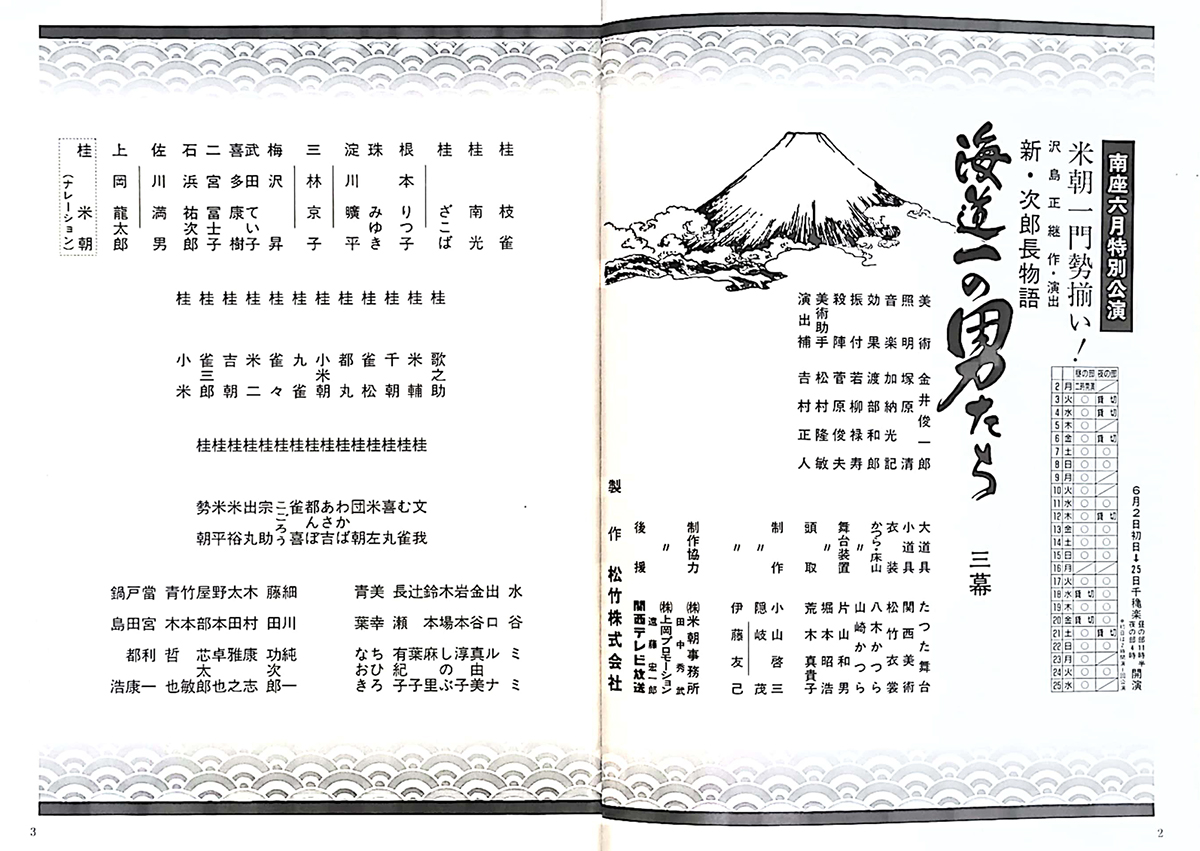 南座六月特別公演
米朝一門勢揃い!
沢島正継 作・演出
新・次郎長物語
海道一の男たち
三幕
6月2日初日→25日千穐楽
昼の部11時半
夜の部4時
開演
昼の部 夜の部
2 月 ／
3 火 ○ 貸切
4 水 ○ 貸切
5 木 ○ ／
6 金 ○ 貸切
7 土 ○ ○
8 日 ○ ○
9 月 ○ ／
10 火 ○ ／
11 水 ○ ○
12 木 ○ 貸切
13 金 ○ ○
14 土 ○ ○
15 日 ○ ○
16 月 ／ ／
17 火 ○ ○
18 水 貸切 ○
19 木 ○ ○
20 金 貸切 ○
21 土 ○ 貸切
22 日 ○ ○
23 月 ○ ／
24 火 ○ ○
25 水 ○ ／
美術 金井俊一郎
照明 塚原清
音楽 加納光記
効果 渡部和郎
振付 若柳禄寿
殺陣 菅原俊夫
美術助手 松村隆敏
演出補 吉村正人
大道具 たつた舞台
小道具 関西美術
衣装 松竹衣裳
かつら・床山 八木かつら
山崎かつら
舞台装置 片山和男
〃 堀本昭浩
頭取 荒木真貴子
制作 小山啓三
〃 隠岐茂
〃 伊藤友己
制作協力 ㈱米朝事務所
田中秀武
〃 ㈱上岡プロモーション
遠藤宏一郎
後援 関西テレビ放送
製作 松竹株式会社
2
桂枝雀
桂南光
桂ざこば
根本りつ子
珠みゆき
淀川曠平
三林京子
梅沢昇
武田てい子
喜多康樹
二宮冨士子
石浜祐次郎
佐川満男
上岡龍太郎
桂米朝
(ナレーション)
桂歌之助
桂米輔
桂千朝
桂雀松
桂都丸
桂小米朝
桂九雀
桂雀々
桂米二
桂吉朝
桂雀三郎
桂小米
桂文我
桂む雀
桂喜丸
桂米左
桂団朝
桂わかば
桂あさ吉
桂都んぼ
桂雀喜
桂こごろう
桂宗助
桂出丸
桂米裕
桂米平
桂勢朝
水谷ミミ
出口ルナ
金谷真由美
岩本淳子
木場しのぶ
鈴本麻里
辻葉子
長瀬有紀子
美幸ちひろ
青葉なおき
細川純一
藤田功次郎
木村康志
太田雅之
野本卓也
屋部芯太郎
竹本敏
青木哲也
當宮利一
戸田都康
鍋島浩
3